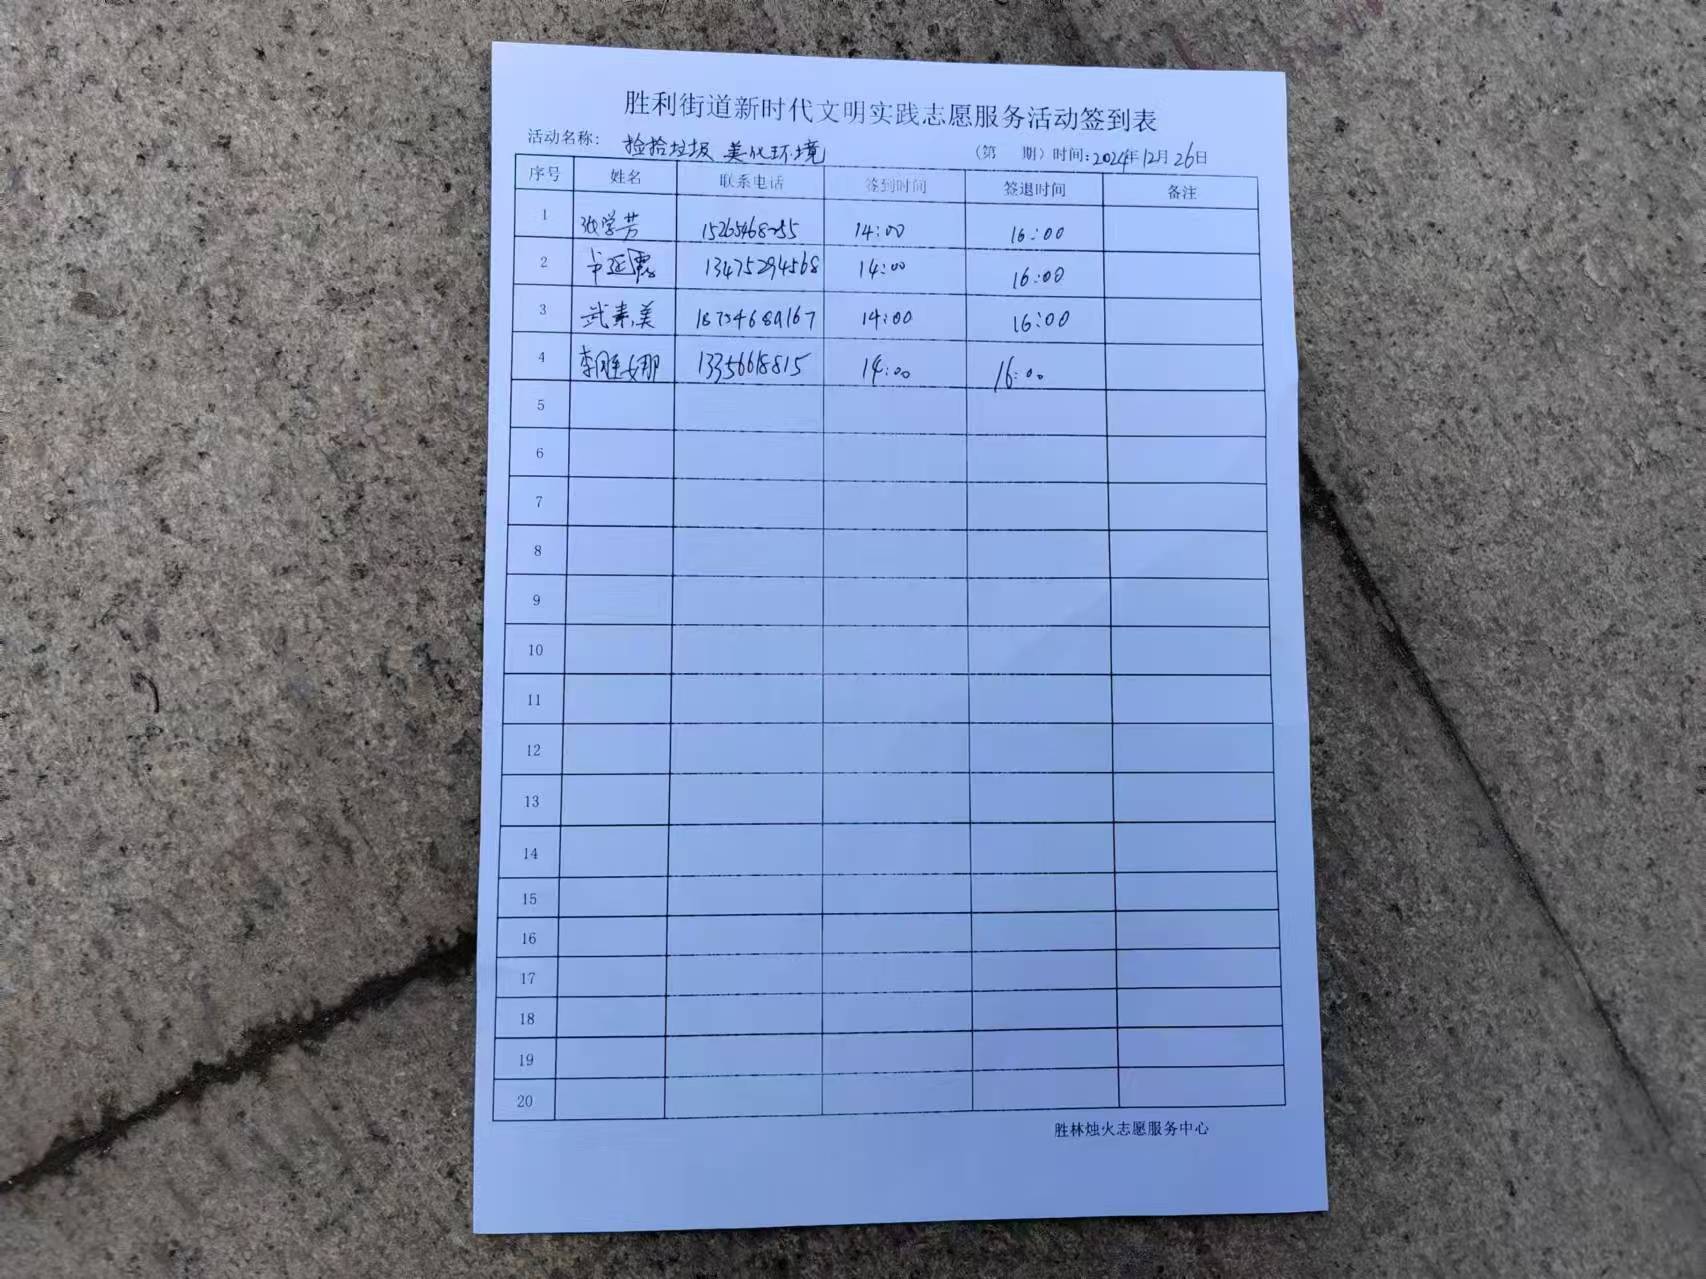 胜利街道新时代文明实践志愿服务活动签到表
活动名称: 捡拾垃圾 美化环境 (第 期) 时间:2024年12月26日
序号 姓名 联系电话 签到时间 签退时间 备注
1 张学芳 14:00 16:00
2 13475294568 14:00 16:00
3 武素美 14:00 16:00
4 李 娜 13356618815 14:00 16:00
5
6
7
8
9
10
11
12
13
14
15
16
17
18
19
20
胜林烛火志愿服务中心